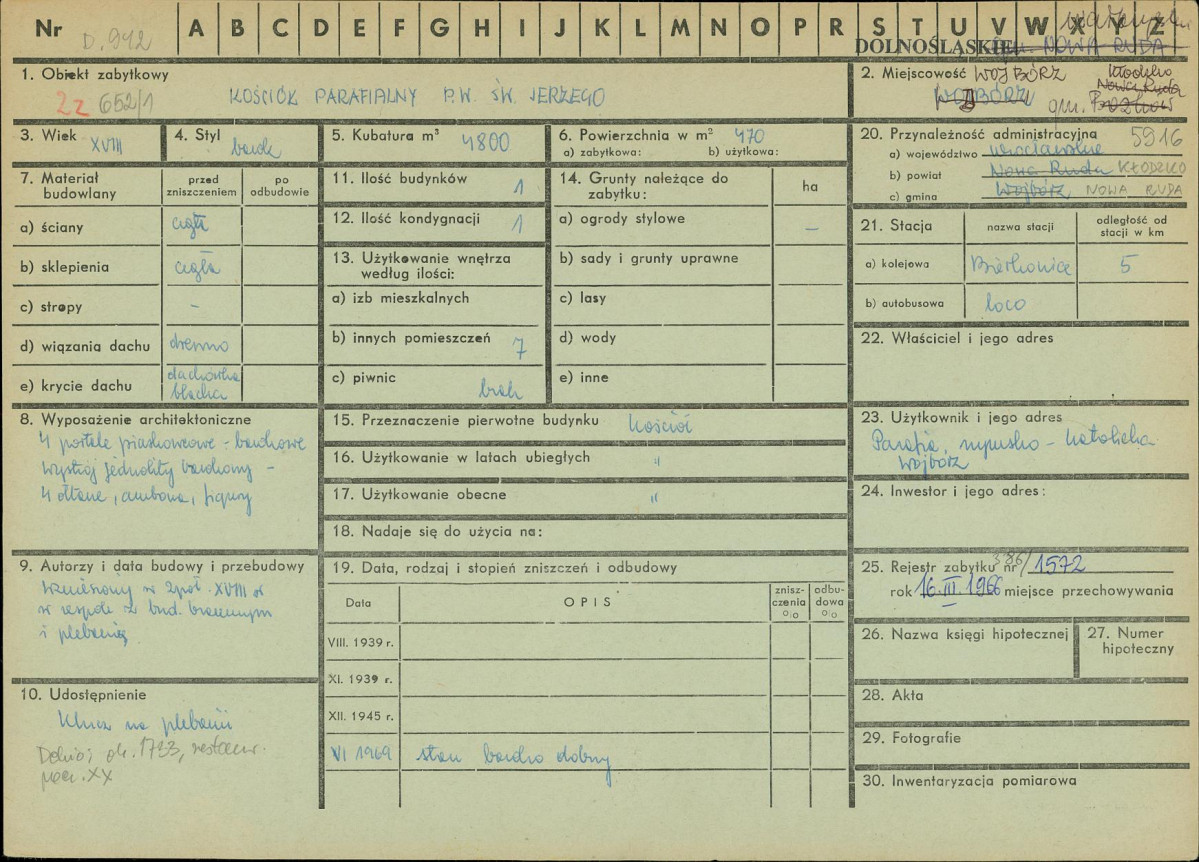 Nr D. 942 A B C D E F G H I J K L M N O P R S T U V W X Y Z
DOLNOŚLĄSKIE NOWA RUDA
1. Obiekt zabytkowy
652/1 KOŚCIÓŁ PARAFIALNY P.W. ŚW. JERZEGO
2. Miejscowość WOJBÓRZ
WOJBÓRZ
Kłodzko
Nowa Ruda
gm.
3. Wiek XVIII
4. Styl barok
5. Kubatura m³ 4800
6. Powierzchnia w m² 470
a) zabytkowa: b) użytkowa:
7. Materiał budowlany
przed zniszczeniem
po odbudowie
a) ściany cegła
b) sklepienia cegła
c) stropy -
d) wiązania dachu drewno
e) krycie dachu dachówka blacha
8. Wyposażenie architektoniczne
4 portale piaskowcowe - barokowe
wystrój jednolity barokowy -
4 ołtarze, ambona, figury
9. Autorzy i data budowy i przebudowy
Wzniesiony w 2 poł. XVIII w
w zespole z bud. bramnym
i plebanią.
10. Udostępnienie
Klucz na plebanii
ok. 1733, restaur.
pocz. XX
11. Ilość budynków 1
12. Ilość kondygnacji 1
13. Użytkowanie wnętrza według ilości:
a) izb mieszkalnych
b) innych pomieszczeń 7
c) piwnic brak
14. Grunty należące do zabytku:
ha
a) ogrody stylowe –
b) sady i grunty uprawne
c) lasy
d) wody
e) inne
15. Przeznaczenie pierwotne budynku kościół
16. Użytkowanie w latach ubiegłych "
17. Użytkowanie obecne "
18. Nadaje się do użycia na:
19. Data, rodzaj i stopień zniszczeń i odbudowy
Data OPIS znisz-czenia % odbu-dowa %
VIII. 1939 r.
XI. 1939 r.
XII. 1945 r.
VI 1969 stan bardzo dobry
20. Przynależność administracyjna 5916
a) województwo wrocławskie
b) powiat Nowa Ruda KŁODZKO
c) gmina Wojbórz NOWA RUDA
21. Stacja
nazwa stacji
odległość od stacji w km
a) kolejowa 5
b) autobusowa loco
22. Właściciel i jego adres
23. Użytkownik i jego adres
Parafia rzymsko - katolicka
Wojbórz
24. Inwestor i jego adres:
25. Rejestr zabytku nr 386/1572
rok 16.III.1966 miejsce przechowywania
26. Nazwa księgi hipotecznej
27. Numer hipoteczny
28. Akta
29. Fotografie
30. Inwentaryzacja pomiarowa